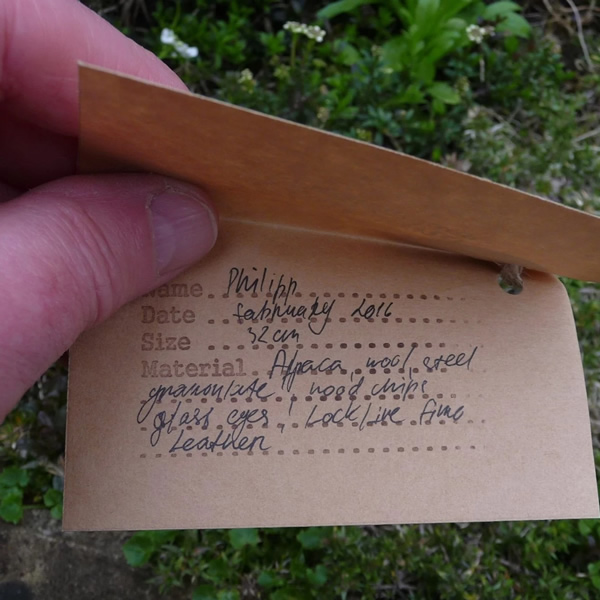 Name Philipp
Date february 2016
Size 32cm
Material Alpaca, wool, steel
granulate, wood chips
glass eyes! Lock line
Leather